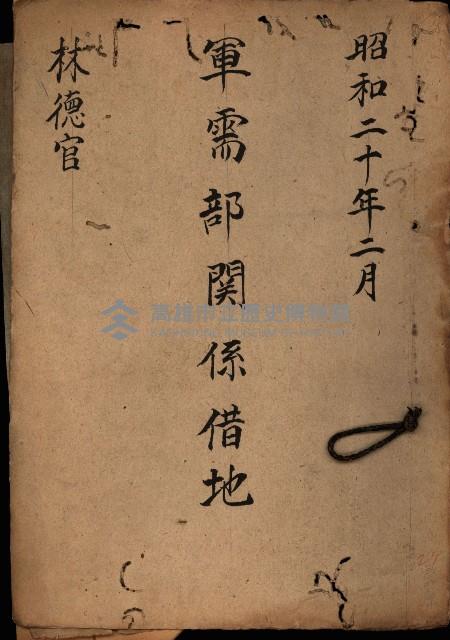 昭和二十年二月
軍需部関係借地
林德官
高雄市立歷史博物館
KAOHSIUNG MUSEUM OF HISTORY